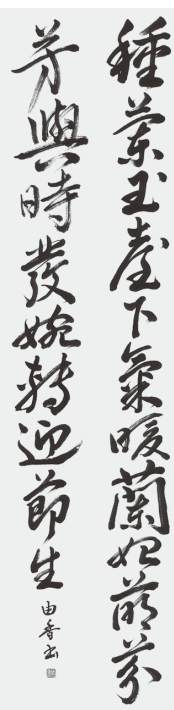 種蘭玉臺下氣暖蘭始萌芬
芳與時發婉轉迎節生
由香書